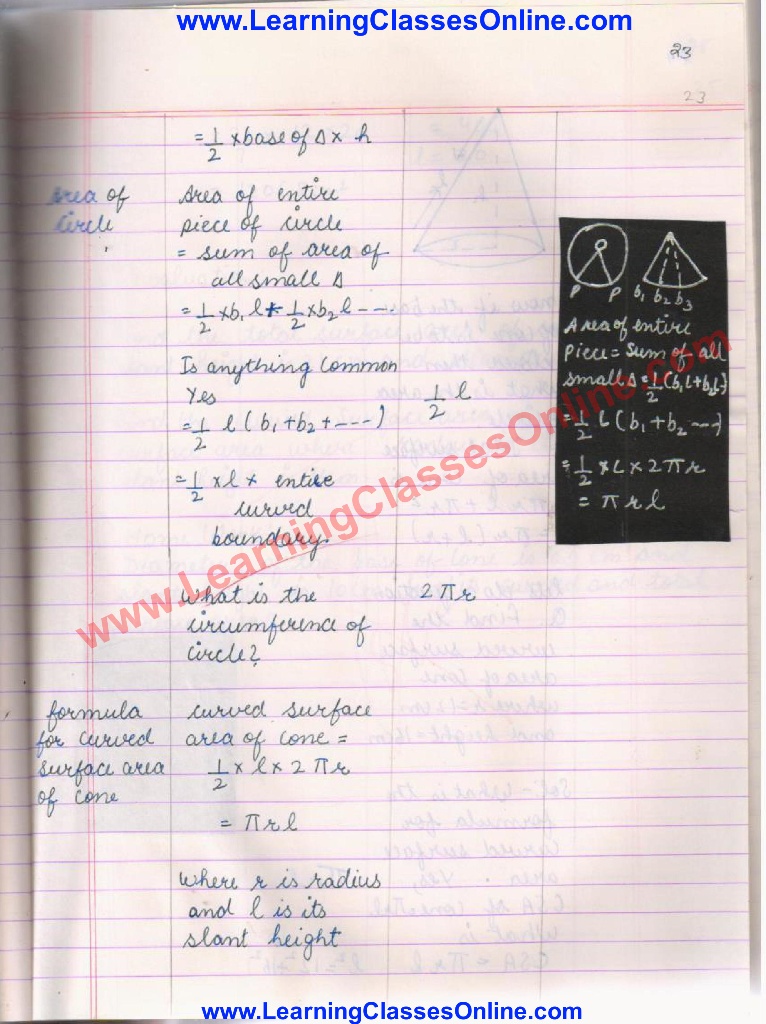 www.LearningClassesOnline.com
23
23
= 1/2 × base of Δ × h
Area of
Circle
Area of entire
piece of circle
= sum of area of
all small Δ
= 1/2 × b₁ l + 1/2 × b₂ l ---
Is anything common
Yes
= 1/2 l (b₁ + b₂ + ---)
1/2 l
= 1/2 × l × entire
curved
boundary.
What is the
circumference of
circle?
2πr
formula
for curved
surface area
of cone
curved surface
area of cone =
1/2 × l × 2πr
= πrl
where r is radius
and l is its
slant height
P P b₁ b₂ b₃
Area of entire
Piece = Sum of all
small Δ = 1/2 (b₁l + b₂l--)
= 1/2 l (b₁ + b₂ ---)
= 1/2 × l × 2πr
= πrl
www.LearningClassesOnline.com
www.LearningClassesOnline.com